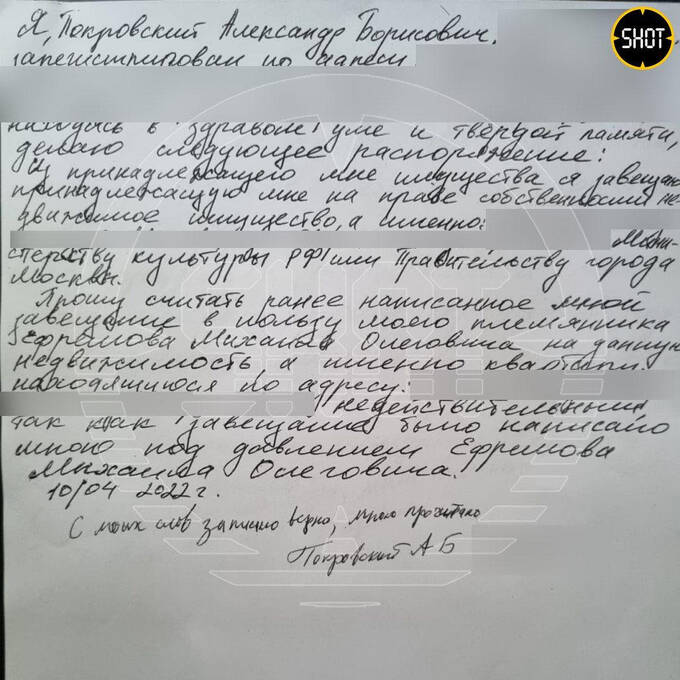 SHOT
Я, Покровский Александр Борисович,
зарегистрирован по адресу
находясь в здравом уме и твёрдой памяти,
делаю следующее распоряжение:
Из принадлежащего мне имущества я завещаю
принадлежащую мне на праве собственности не-
движимое имущество, а именно:
Мини-
стерству культуры РФ или Правительству города
Москвы.
Прошу считать ранее написанное мной
завещание в пользу моего племянника
Ефремова Михаила Олеговича на данную
недвижимость, а именно квартиру
находящиюся по адресу:
недействительным,
так как завещание было написано
мною под давлением Ефремова
Михаила Олеговича.
10/04 2022 г.
С моих слов записано верно, мною прочитано
Покровский А Б